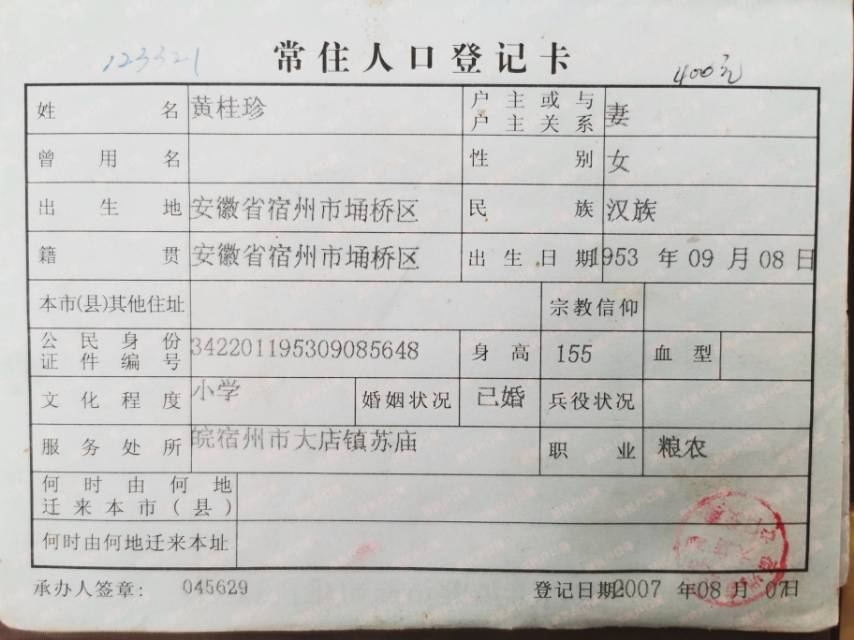 123321
常住人口登记卡
400元
姓名 黄桂珍 户主或与户主关系 妻
曾用名 性别 女
出生地 安徽省宿州市埇桥区 民族 汉族
籍贯 安徽省宿州市埇桥区 出生日期 1953年09月08日
本市(县)其他住址 宗教信仰
公民身份证件编号 342201195309085648 身高 155 血型
文化程度 小学 婚姻状况 已婚 兵役状况
服务处所 皖宿州市大店镇苏庙 职业 粮农
何时由何地迁来本市(县)
何时由何地迁来本址
承办人签章: 045629 登记日期 2007年08月07日